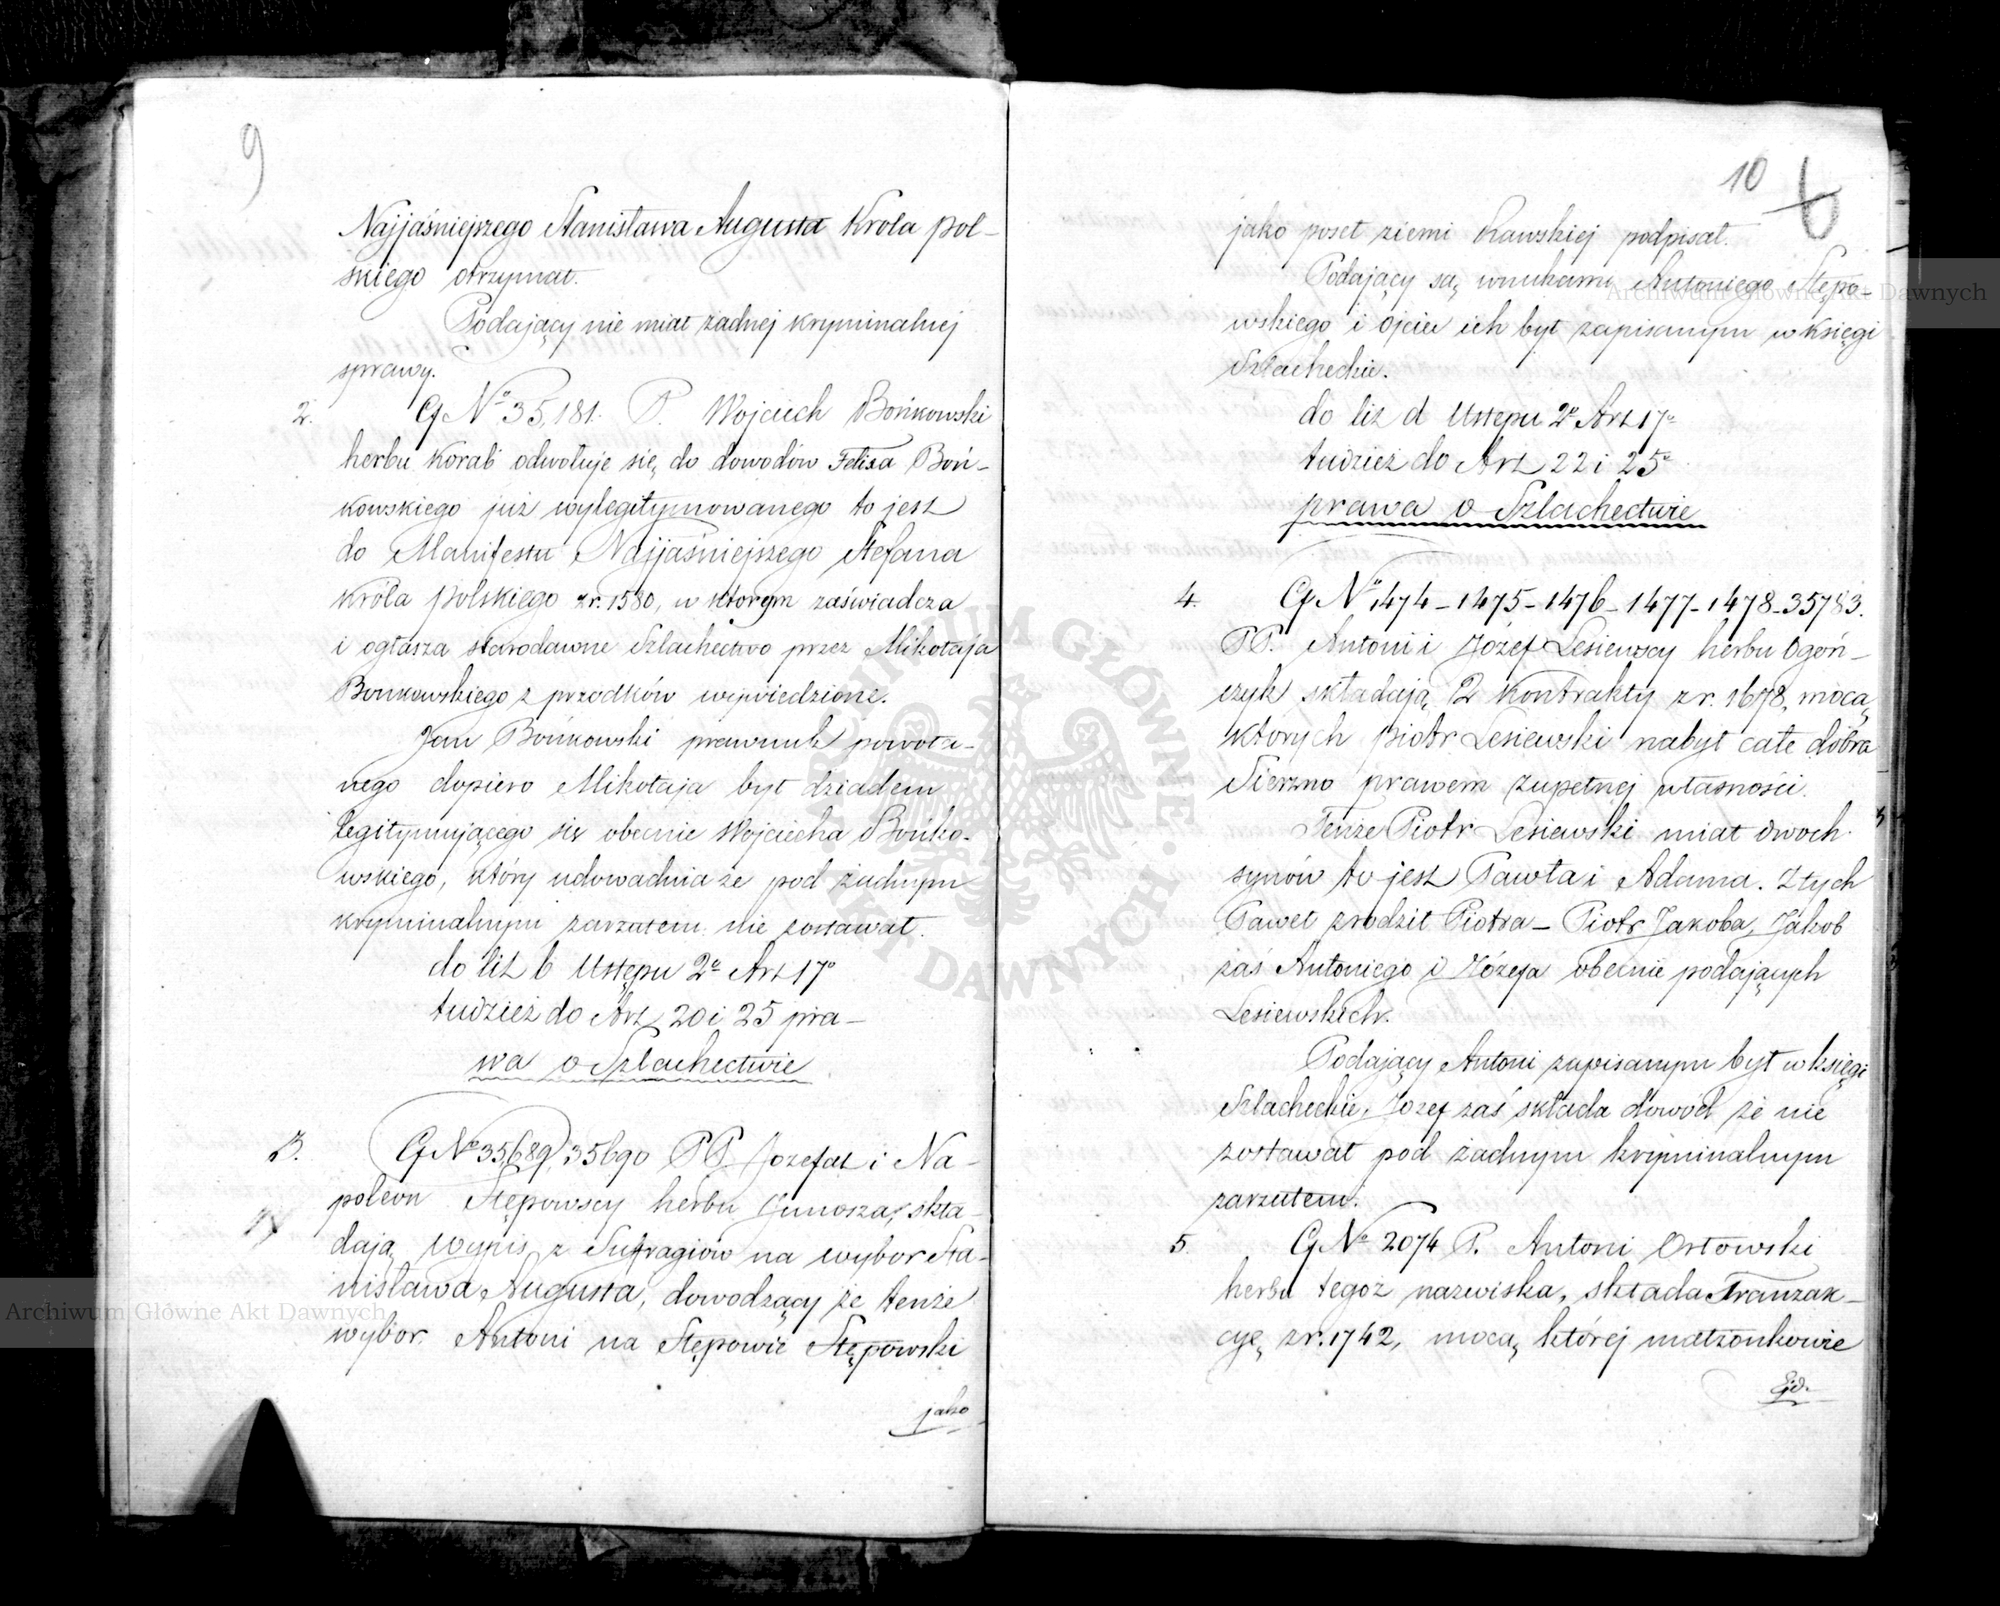 9
Najjaśniejszego Stanisława Augusta Króla pol-
skiego otrzymał.
Podający nie miał żadnej kryminalnej
sprawy.
2. G N° 35,181. P. Wojciech Bońkowski
herbu Korab odwołuje się do dowodów Felixa Boń-
kowskiego już wylegitymowanego to jest
do Manifestu Najjaśniejszego Stefana
Króla polskiego z r. 1580, w którym zaświadcza
i ogłasza starodawne Szlachectwo przez Mikołaja
Bonkowskiego z przodków wywiedzione.
Jan Bońkowski prawnuk powoła-
nego dopiero Mikołaja był dziadem
legitymującego się obecnie Wojciecha Bońko-
wskiego, który udowadnia że pod żadnym
kryminalnym zarzutem nie zostawał.
do lit b Ustępu 2° Art 17°
tudzież do Art 20 i 25 pra-
wa o Szlachectwie
3. G N° 35689, 35690 PP Jozefat i Na-
poleon Stępowscy herbu Junosza, skła-
dają Wypis z Sufragiów na wybor Sta-
nisława Augusta, dowodzący że tenże
wybór Antoni na Stępowie Stępowski
jako
10
6
jako poseł ziemi Rawskiej podpisał.
Podający są wnukami Antoniego Stępo-
wskiego i ojciec ich był zapisanym w Księgi
Szlacheckie.
do lit d Ustępu 2° Art 17°
tudzież do Art 22 i 25°
prawa o Szlachectwie
4. G N° 1474-1475-1476-1477-1478-35783.
PP. Antoni i Józef Lesiewscy herbu Ogoń-
czyk składają 2 Kontrakty z r. 1678, mocą
których Piotr Lesiewski nabył całe dobra
Sierzno prawem zupełnej własności.
Tenże Piotr Lesiewski miał dwoch
synów to jest Pawła i Adama. Z tych
Paweł zrodził Piotra - Piotr Jakoba, Jakob
zaś Antoniego i Józefa obecnie podających
Lesiewskich.
Podający Antoni zapisanym był w księgi
Szlacheckie, Jozef zaś składa dowod że nie
zostawał pod żadnym kryminalnym
zarzutem.
5. G N° 2074 P. Antoni Orłowski
herbu tegoż nazwiska, składa Tranzak-
cyę z r. 1742, mocą której małżonkowie
Archiwum Główne Akt Dawnych
Archiwum Główne Akt Dawnych
ARCHIWUM GŁÓWNE AKT DAWNYCH